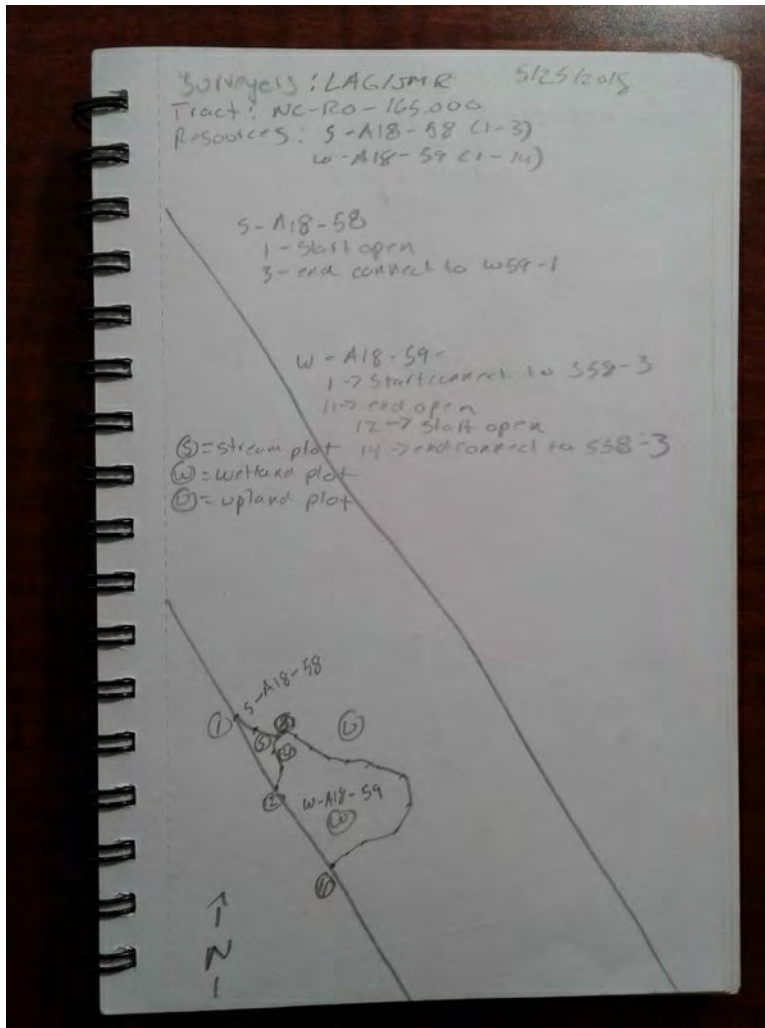 Surveyers: LAG/JMR 5/25/2018
Tract: NC-RO-165.000
Resources: S-A18-58 (1-3)
W-A18-59 (1-14)
S-A18-58
1 - Start open
3 - end connect to W59-1
W-A18-59-
1 -> Start connect to S58-3
11 -> end open
12 -> Start open
14 -> end connect to S58-3
S = stream plot
W = wetland plot
U = upland plot
S-A18-58
1
S
U
12
W-A18-59
W
11
N